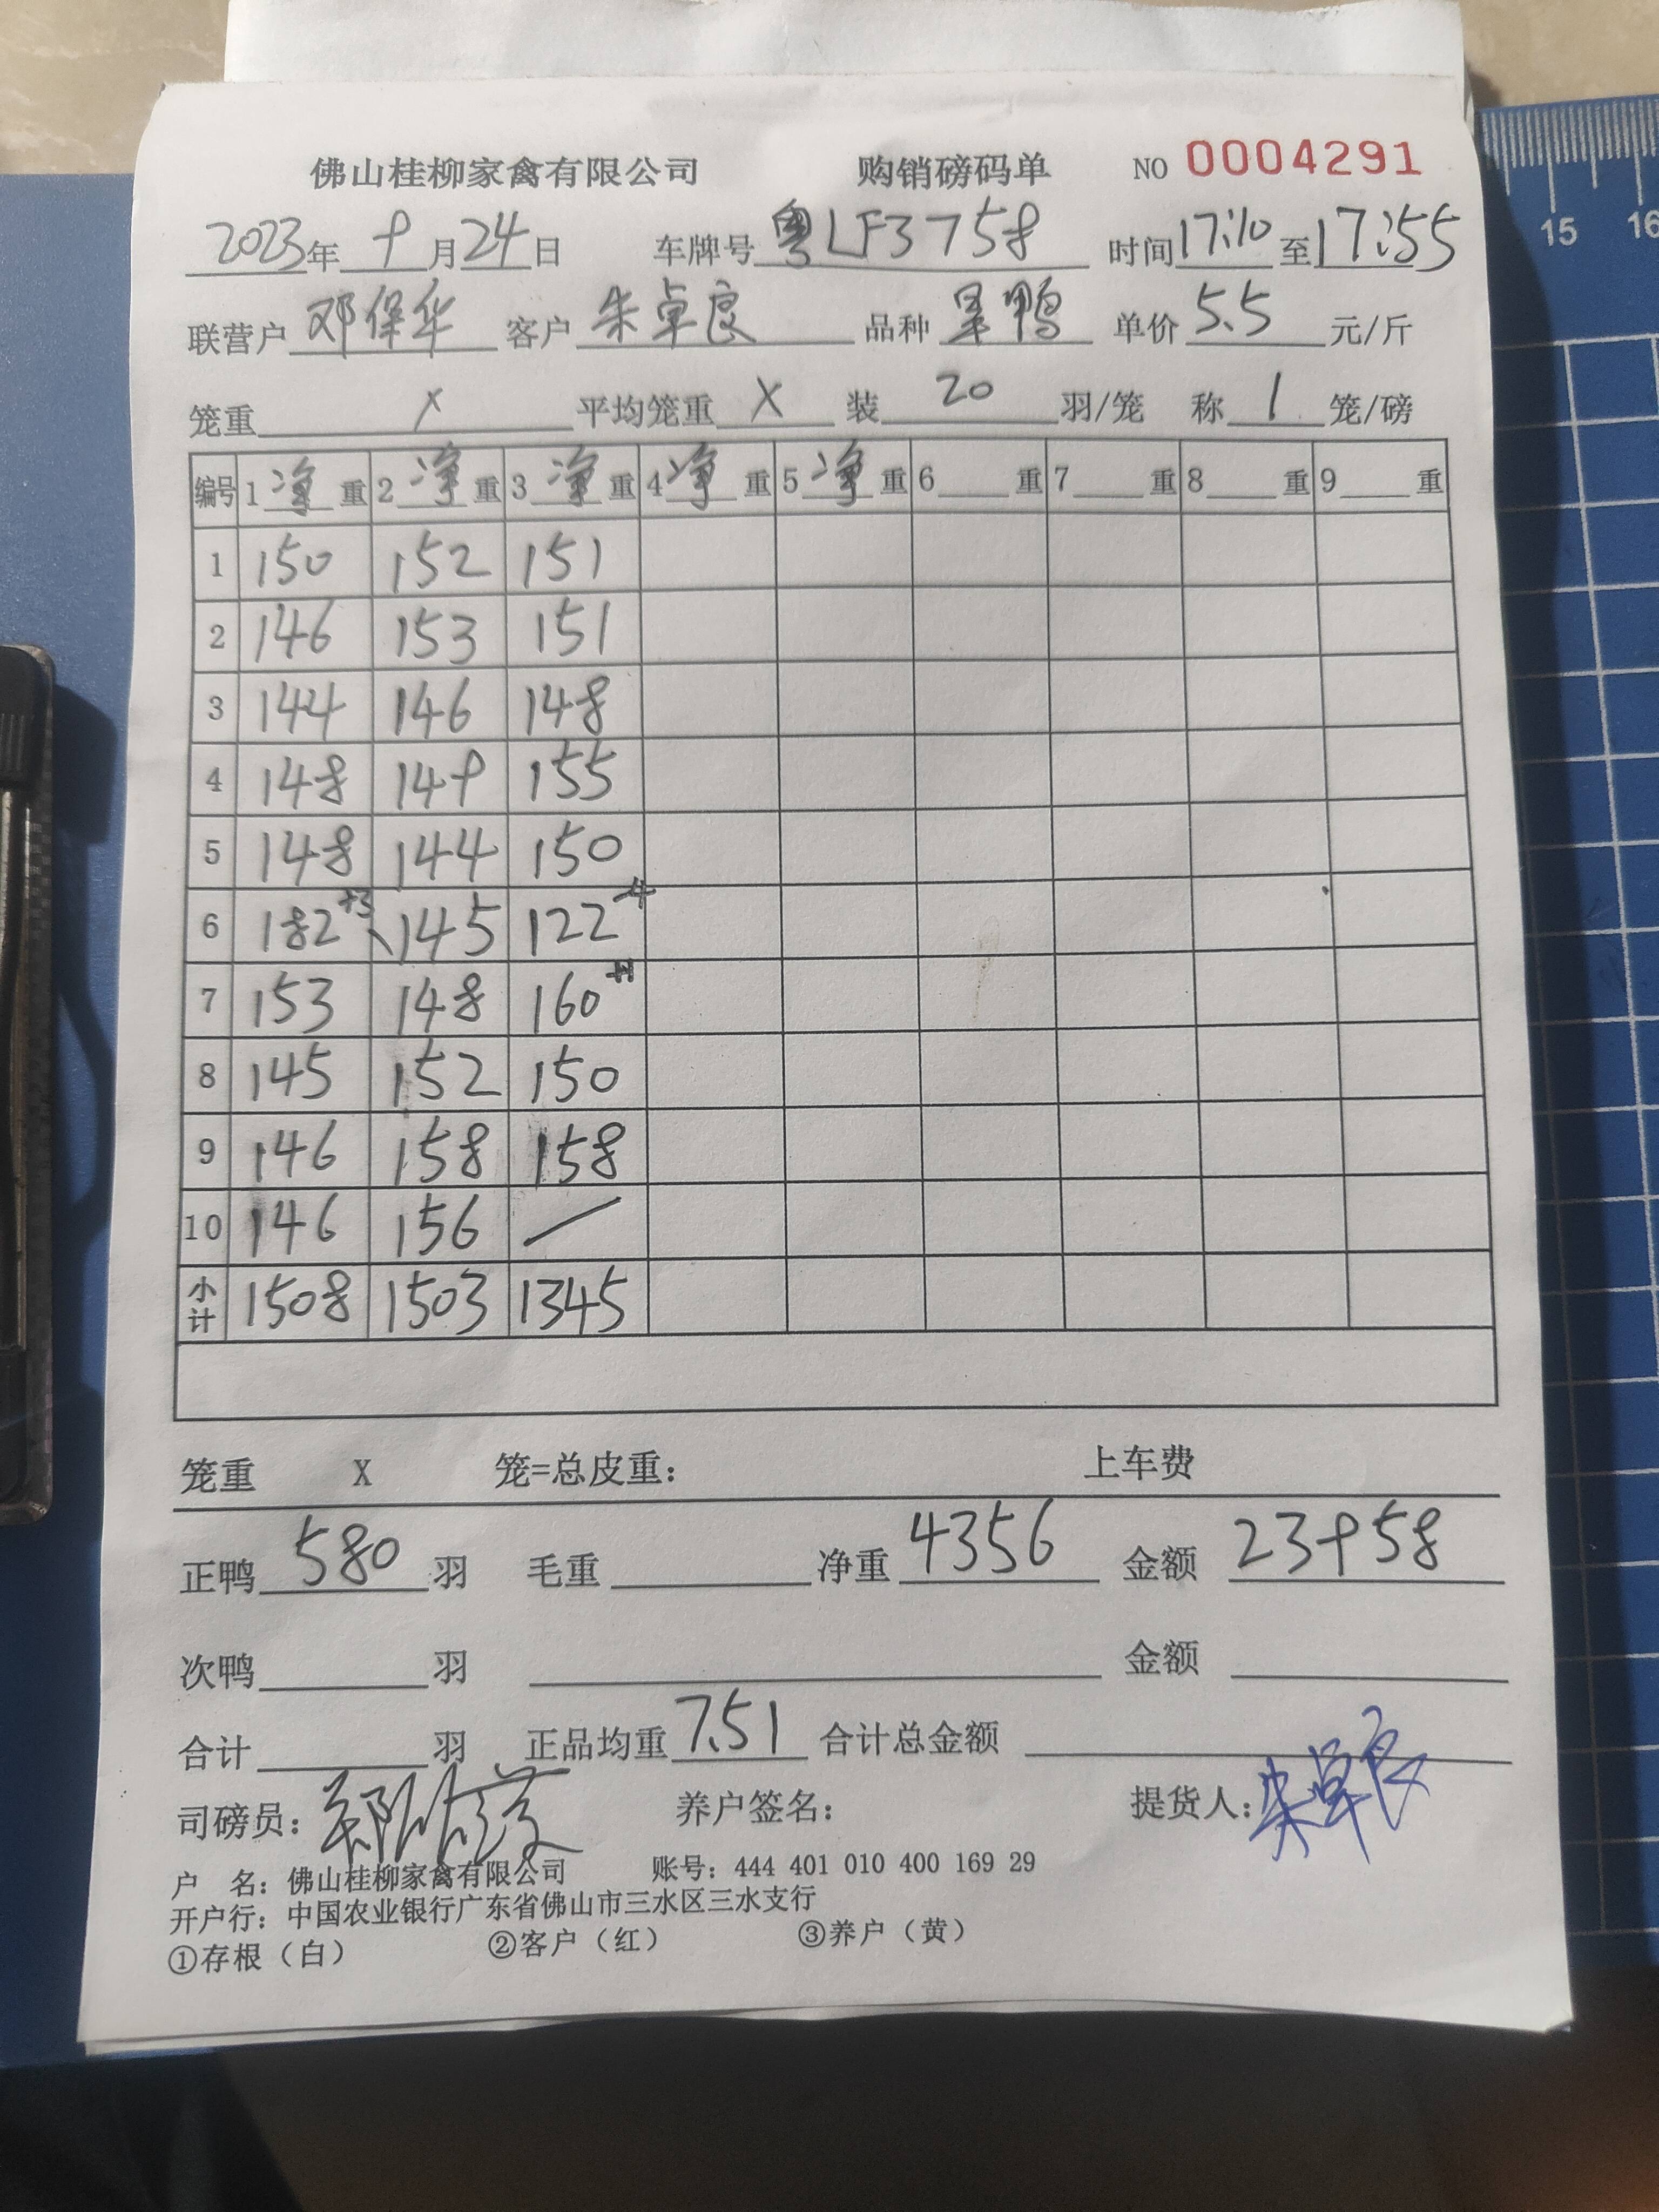 佛山桂柳家禽有限公司 购销磅码单 NO 0004291
2023年 9月24日 车牌号 粤LF3758 时间17:10至17:55
联营户 邓保华 客户 朱卓良 品种 鸭 单价 5.5 元/斤
笼重 X 平均笼重 X 装 20 羽/笼 称 1 笼/磅
编号 1 净 重 2 净 重 3 净 重 4 净 重 5 净 重 6 重 7 重 8 重 9 重
1 150 152 151
2 146 153 151
3 144 146 148
4 148 149 155
5 148 144 150
6 182+3 145 122-4
7 153 148 160+1
8 145 152 150
9 146 158 158
10 146 156 /
小计 1508 1503 1345
笼重 X 笼=总皮重: 上车费
正鸭 580 羽 毛重 净重 4356 金额 23958
次鸭 羽 金额
合计 羽 正品均重 7.51 合计总金额
司磅员: 养户签名: 提货人: 朱卓良
户 名: 佛山桂柳家禽有限公司 账号: 444 401 010 400 169 29
开户行: 中国农业银行广东省佛山市三水区三水支行
①存根（白） ②客户（红） ③养户（黄）
15 16